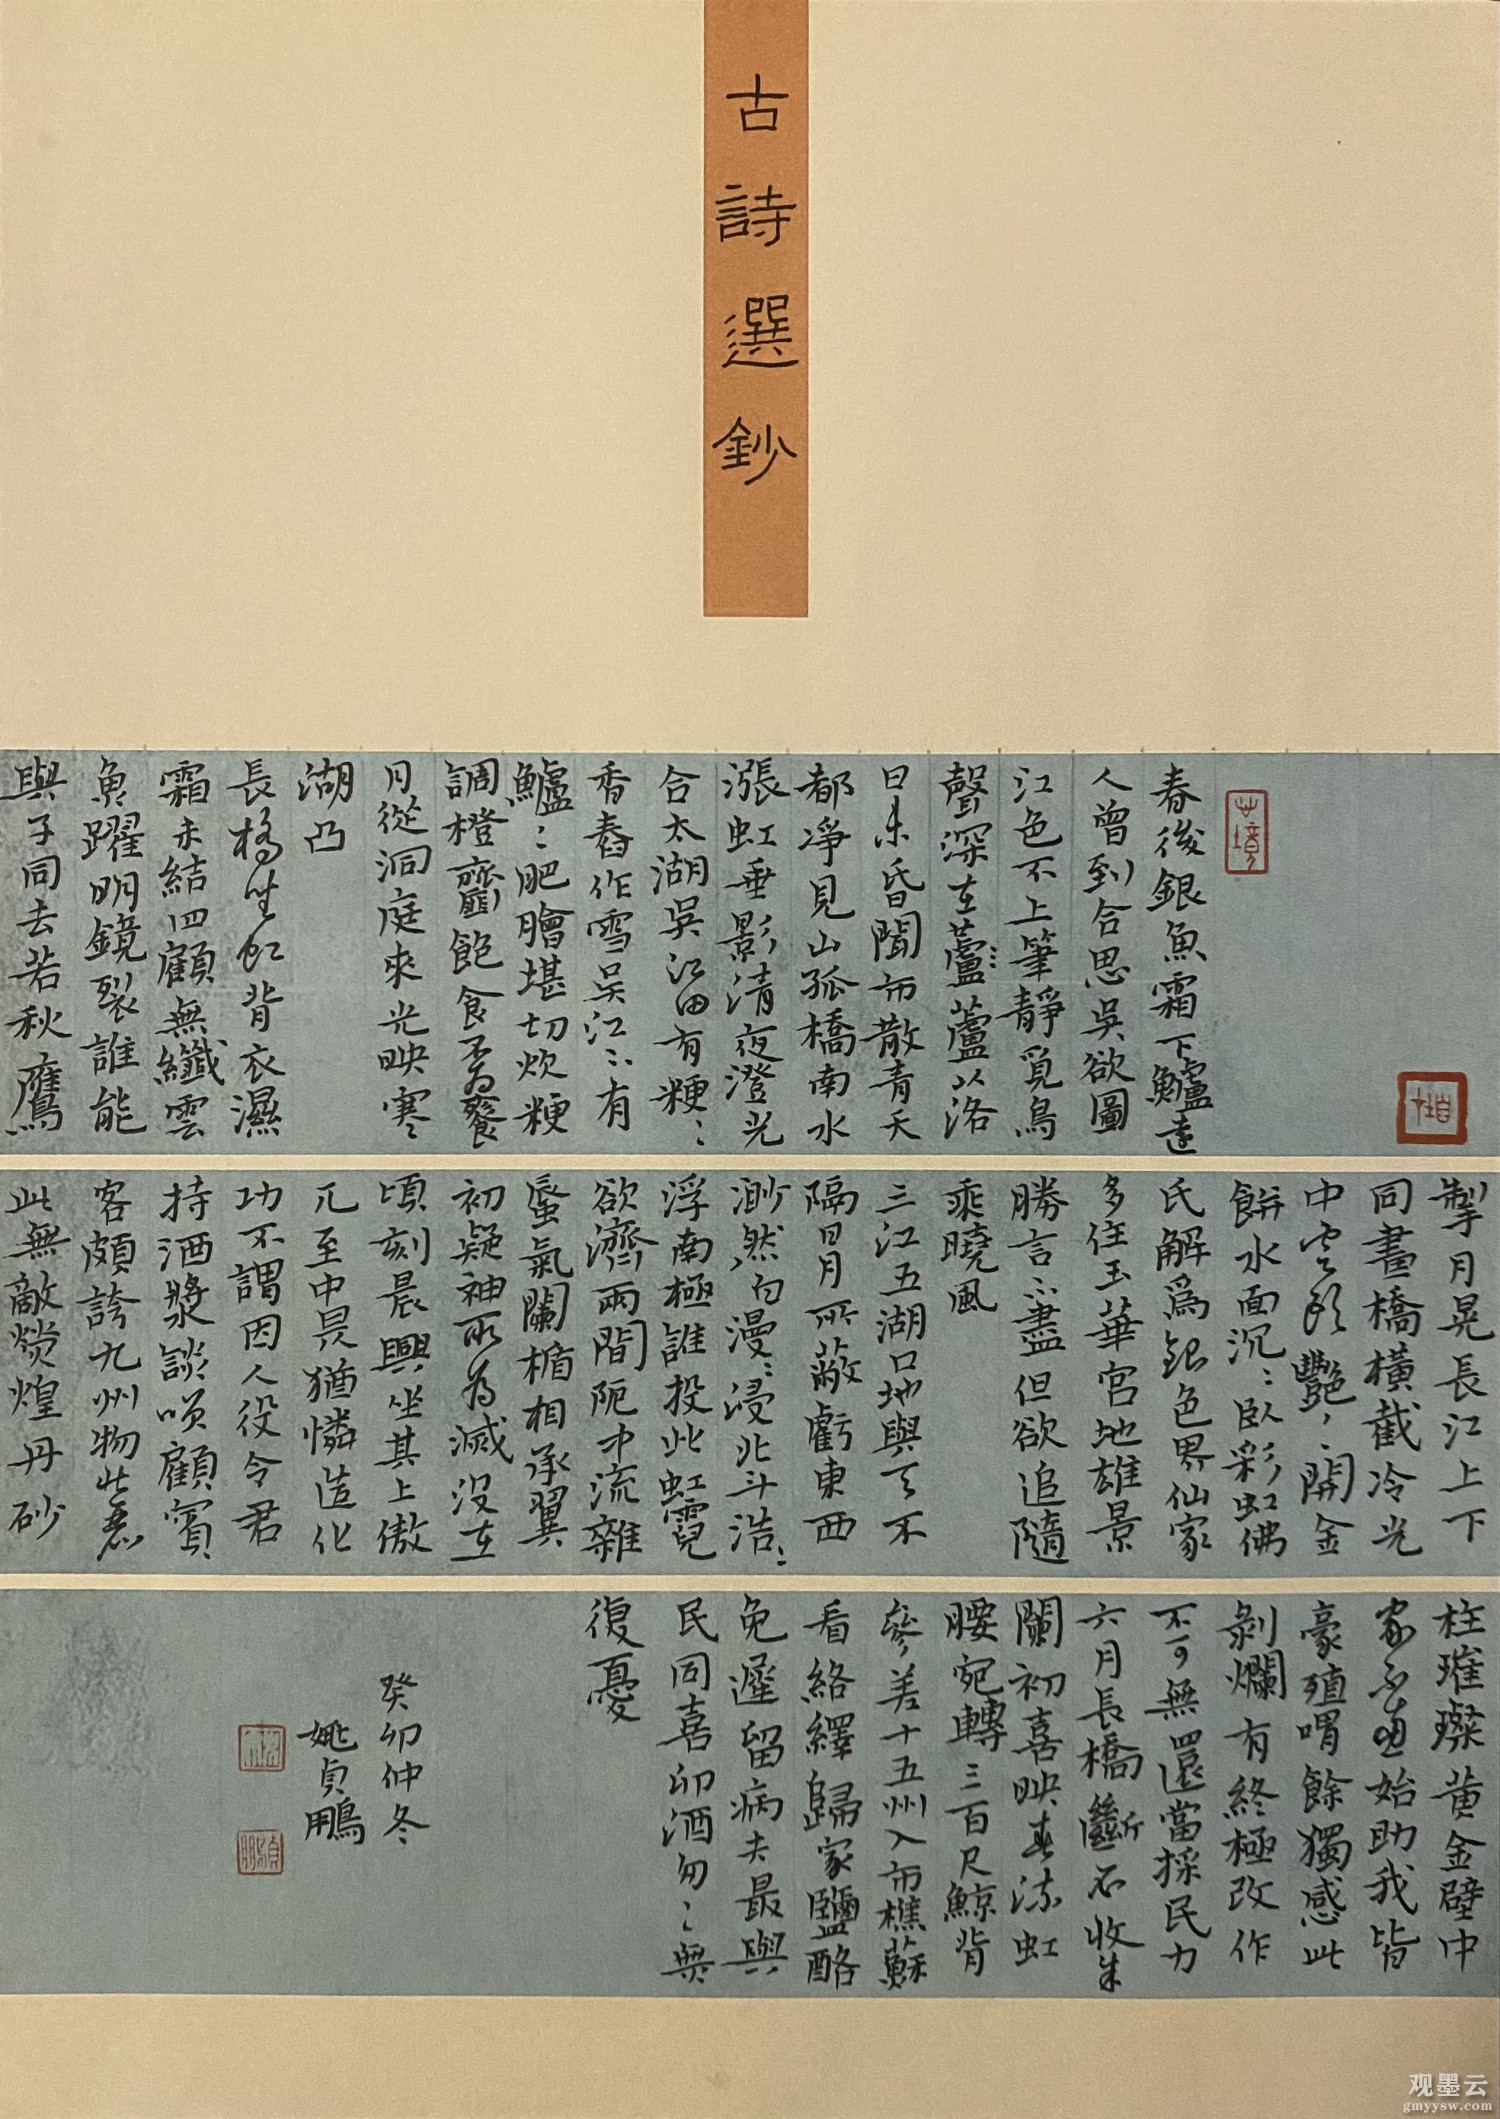 古詩選鈔
春後銀魚霜下鱸遠
人曾到合思吳欲圖
江色不上筆靜覓鳥
聲深在蘆蘆以洛
日未昏聞而散青天
都凈見山孤橋南水
漲虹垂影清夜澄光
合太湖吳江田有粳粳
香舂作雪吳江江有
鱸鱸肥膾堪切炊粳
調橙虀飽食不為餮
月從洞庭來光映寒
湖凸
長橋坐虹背衣濕
霜未結四顧無纖雲
魚躍明鏡裂誰能
與子同去若秋鷹
掣月晃長江上下
同畫橋橫截冷光
中雲頭艷艷開金
餅水面沉沉臥彩虹佛
氏解為銀色界仙家
多住玉華宮地雄景
勝言不盡但欲追隨
乘曉風
三江五湖口地與天不
隔日月所蔽虧東西
渺然白漫漫浸北斗浩浩
浮南極誰投此虹霓
欲濟兩間阨中流雜
蜃氣闌楯相承翼
初疑神所為滅沒在
頃刻晨興坐其上傲
兀至中昃猶憐造化
功不謂因人役令君
持酒漿談笑顧賓
客頗誇九州物壯麗
此無敵熒煌丹砂
柱璀璨黃金壁中
家不慮始助我皆
豪殖喟餘獨感此
剝爛有終極改作
不可無還當採民力
六月長橋斷不收朱
闌初喜映春流虹
腰宛轉三百尺鯨背
參差十五州入市樵蘇
看絡繹歸家鹽酪
免遲留病夫最與
民同喜卯酒匆匆無
復憂
癸卯仲冬
姚貞鵬
观墨云
gmyysw.com